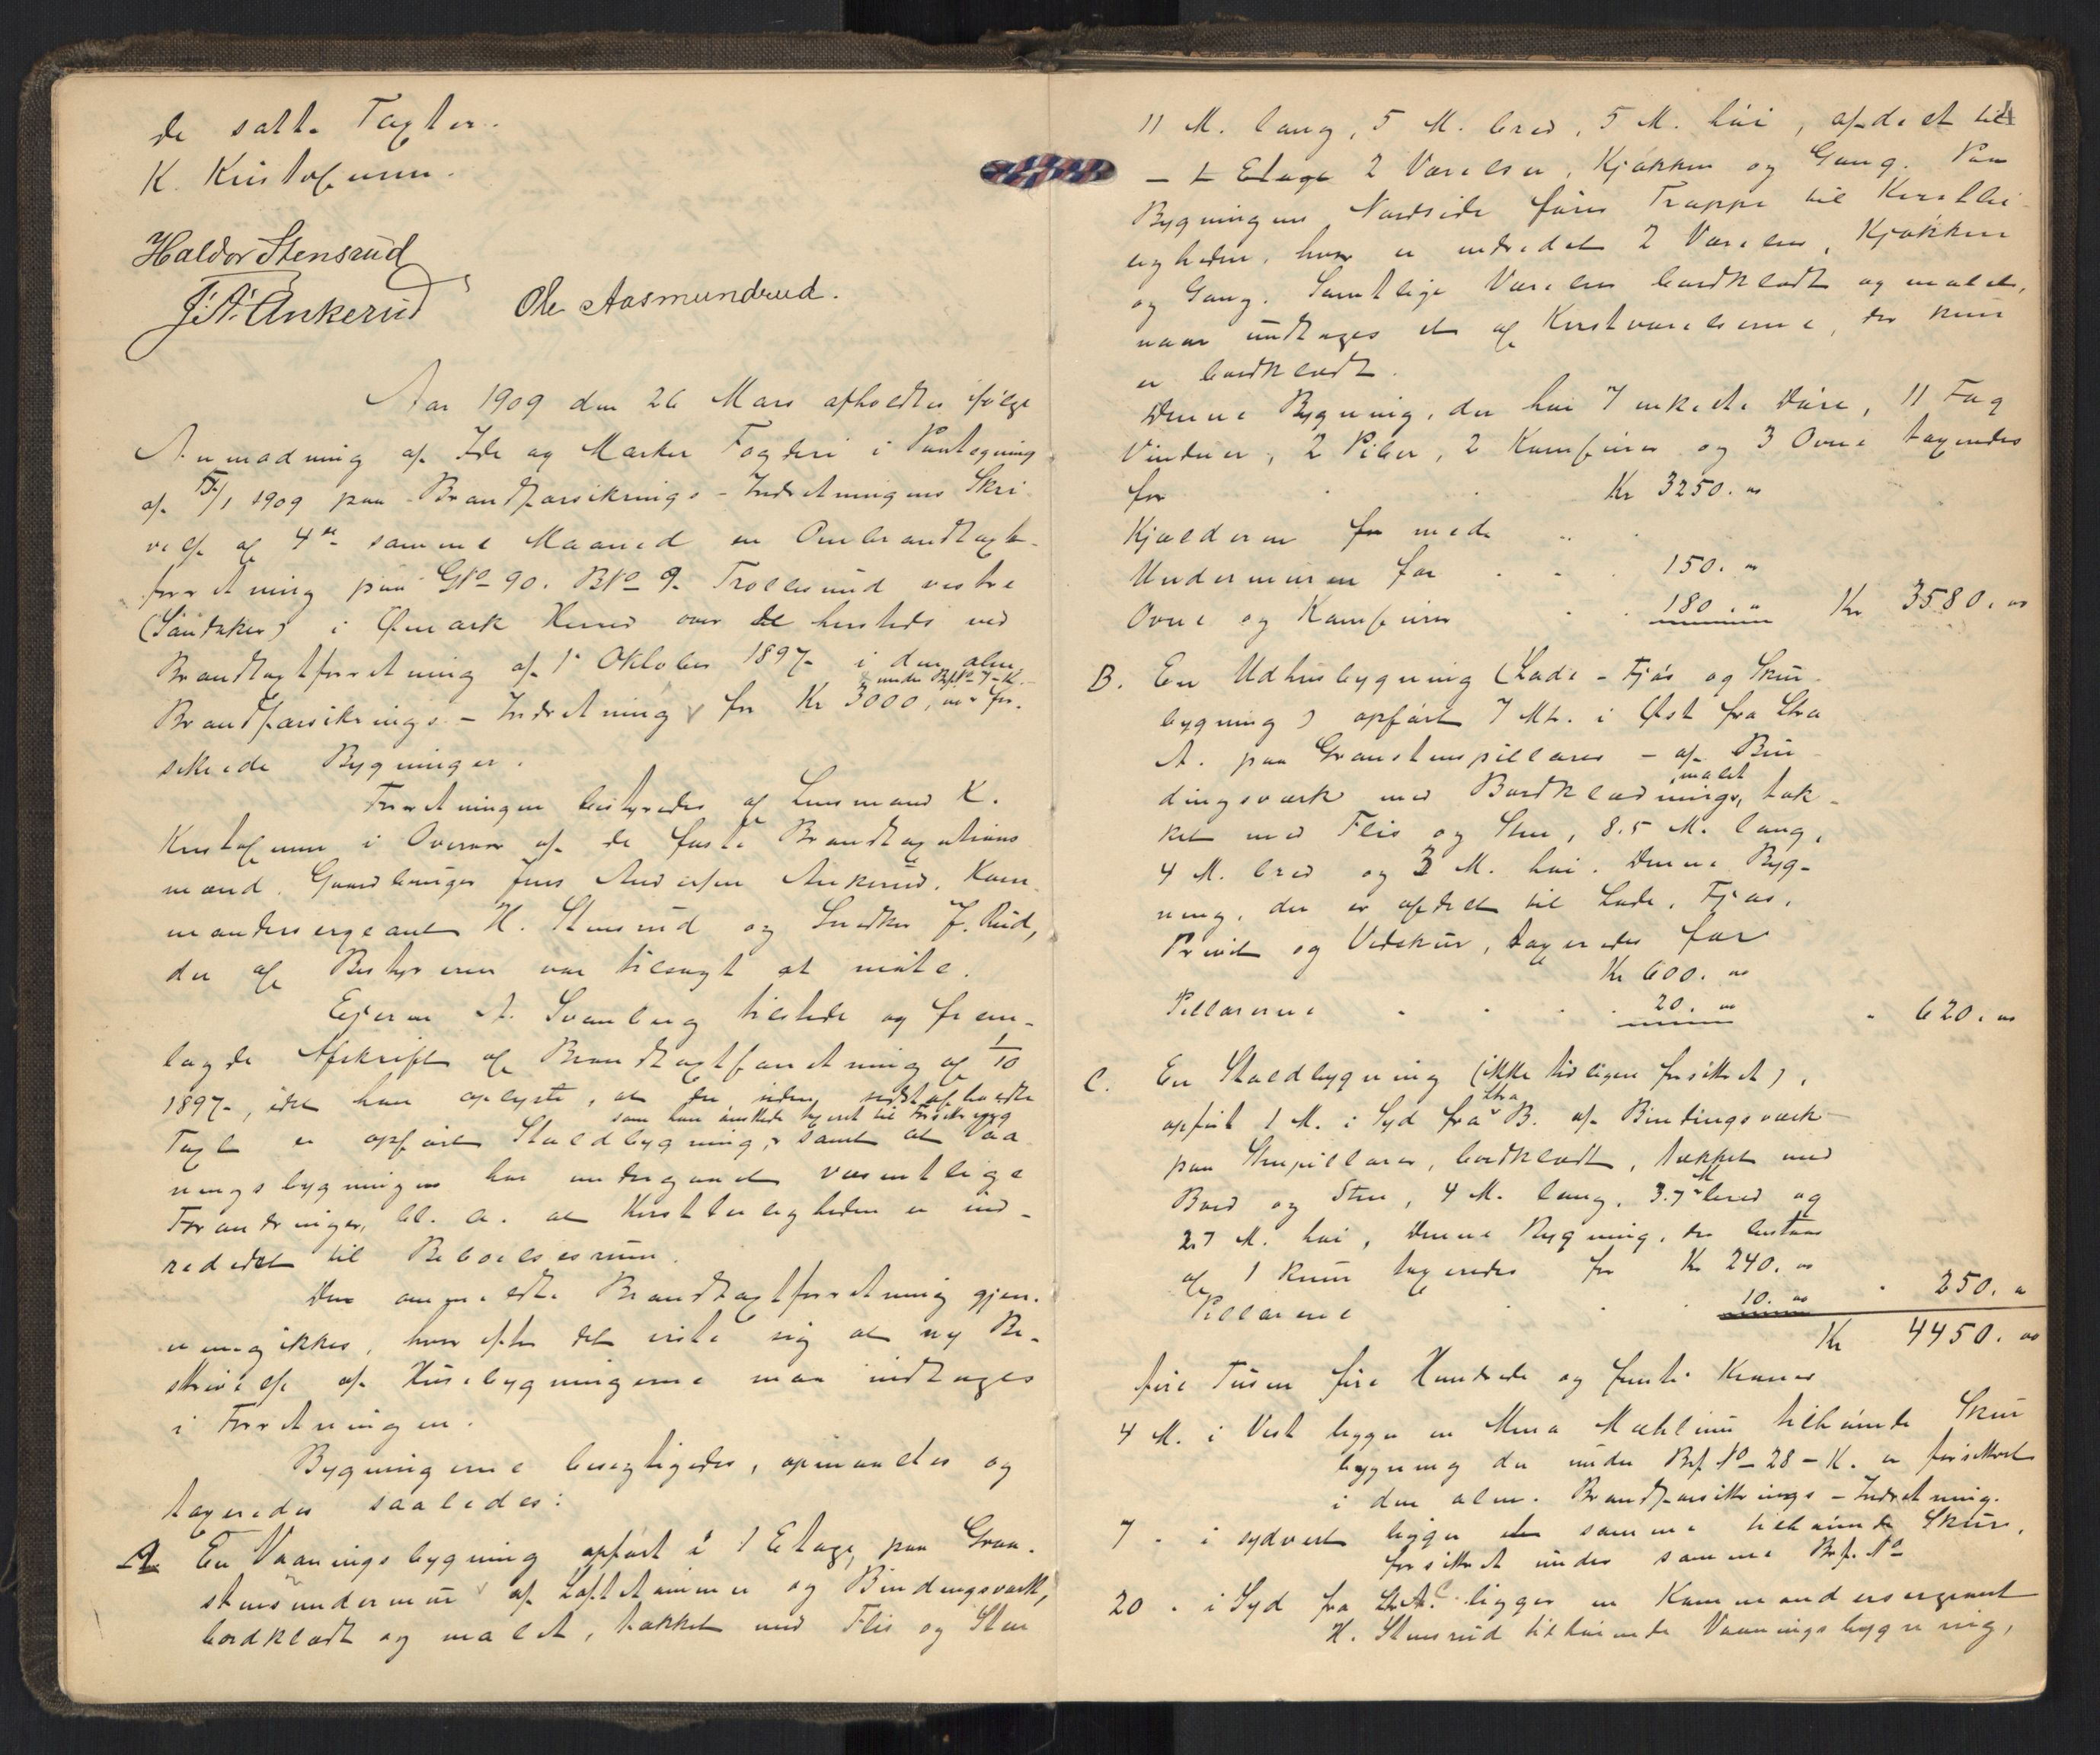 de satte Taxter.
K. Kristofersen.
Haldor Stensrud
J. A. Ankerud Ole Aasmundrud.
Aar 1909 den 26 Mars afholdtes ifølge
Anmodning af Ide og Marker Fogderi i Paategning
af 15/1 1909 paa Brandforsikrings-Indretningens Skri
velse af 4de samme Maaned en Ombrandtaxt-
forretning paa GNo 90. BNo 9. Trollesund vestre
(Sandaker) i Ømark Herred over de hersteds ved
Brandtaxtforretning af 1. Oktober 1897 i den alm.
under Bf.No 7-K.
Brandforsikrings-Indretning for Kr 3000,00 for-
sikrede Bygninger.
Forretningen bestyredes af Lensmand K.
Kristofersen i Overvær af de faste Brandtaxations
mænd. Gaardbruger Jens Andersen Ankerud, Kom-
mandersergeant H. Stensrud og Snedker J. Rud,
der af Bestyreren var tilsagt at møte.
Eieren A. Svanberg tilstede og frem-
lagde Afskrift af Brandtaxtforretning af 1/10
1897, idet han oplyste, at der siden sidst afholdte
som han ønskede tagnet til Forsikring
Taxt er opført Staldbygning, samt at Vaa
ningsbygningen har undergaaet væsentlige
Forandringer, bl. a. at Kvistleiligheden er ind-
redet til Beboelsesrum.
Den anmeldte Brandtaxtforretning gjen-
nemgikkes, hvorefter det viste sig at ny Be-
skrivelse af Husebygningerne maa indtages
i Forretningen.
Bygningerne besigtigedes, opmaaltes og
taxeredes saaledes:
A En Vaaningsbygning opført i 1 Etage, paa Graa-
stensundermur af Laftetømmer og Bindingsværk,
bordklædt og malet, tækket med Flis og Sten
11 M. lang, 5 M. bred, 5 M. høi, afdelt til
- 1 Etage 2 Værelser, Kjøkken og Gang. Paa
Bygningens Nordside fører Trappe til Kvistlei-
ligheden, hvor er indredet 2 Værelser, Kjøkken
og Gang. Samtlige Værelser bordklædt og malet,
naar undtages et af Kvistværelserne, der kun
er bordklædt.
Denne Bygning, der har 7 enkelte Døre, 11 Fag
Vinduer, 2 Piber, 2 Komfurer og 3 Ovne taxeredes
for Kr 3250.00
Kjælderen for med
Undermuren for 150.00
Ovne og Komfurer 180.00 Kr 3580.00
B. En Udhusbygning (Lade - Fjøs og Skur-
bygning) opført 7 Mtr. i Øst fra Litra
A. paa Graastenspillarer - af Bin
dingsværk med Bordklædning, malet, tæk-
ket med Flis og Sten, 8.5 M. lang,
4 M. bred og 3 M. høi. Denne Byg-
ning, der er afdelt til Lade, Fjøs,
Privet og Vedskur, taxeredes for
Kr 600.00
Pillarerne 20.00 " 620.00
C. En Staldbygning (ikke tidligere forsikret),
opført 1 M. i Syd fra Litra B. af Bindingsværk
paa Stenpillarer, bordklædt, tækket med
Bord og Sten, 4 M. lang, 3.7 M bred og
2.7 M. høi, Denne Bygning, der bestaar
af 1 Rum taxeredes for Kr 240.00
Pillarerne 10.00 " 250.00
Kr 4450.00
fire Tusen fire Hundrede og femti Kroner
4 M. i Vest ligger en Mina tilhørende Skur
bygning der under Bf. No 28-K. er forsikret
i den alm. Brandforsikrings-Indretning.
7 - i sydvest ligger den samme tilhørende Skur,
forsikret under samme Bf. No
20 - i Syd fra Litr. C. ligger en Kommandersergeant
H. Stensrud tilhørende Vaaningsbygning,